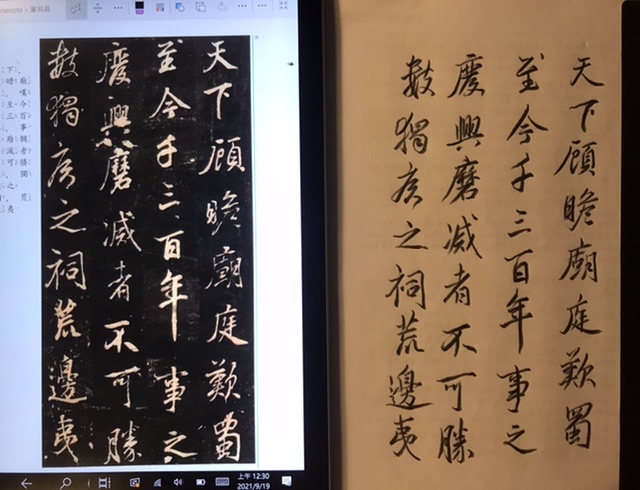 天下顧瞻廟庭歎蜀
至今千三百年事之
廢興磨滅者不可勝
數獨侯之祠荒邊夷
天下顧瞻廟庭歎蜀
至今千三百年事之
廢興磨滅者不可勝
數獨侯之祠荒邊夷
上午 12:30
2021/9/19